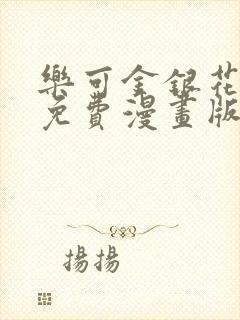 樂可金銀花
免費漫畫版
揚揚